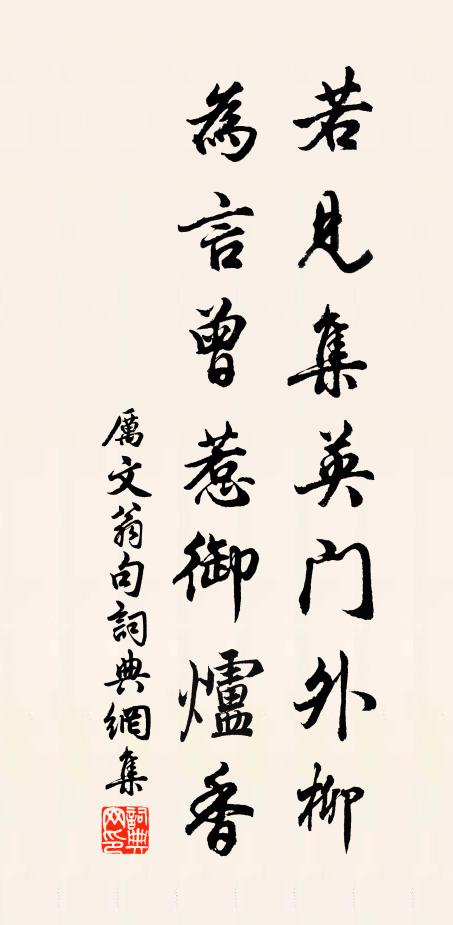 若見集英門外柳
為言曾惹御爐香
厲文翁句詞典網集
詞典網印